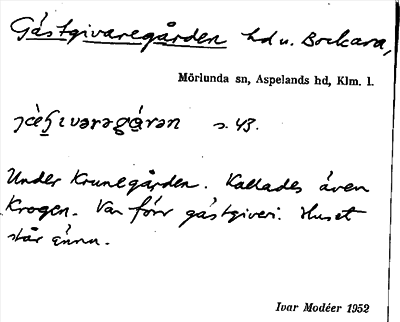 Gästgivaregården hd u. Bockara,
Mörlunda sn, Aspelands hd, Klm. l.
s. 43.
Under Krunegården. Kallades även
Krogen. Var förr gästgiveri. Huset
står ännu.
Ivar Modéer 1952